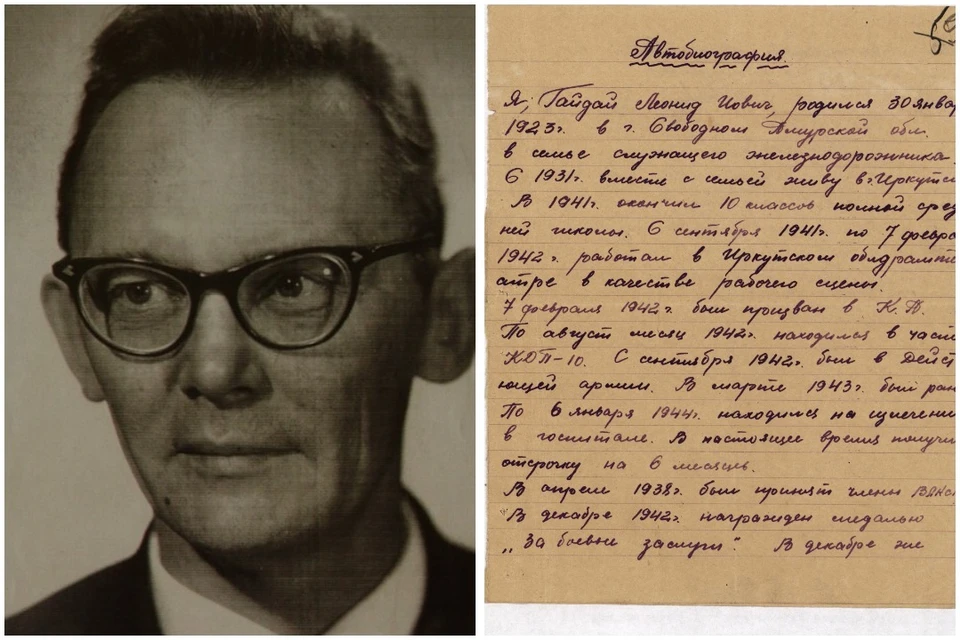 Автобиография.
Я, Гайдай Леонид Иович, родился 30 янва
1923г. в г. Свободном Амурской обл.
в семье служащего железнодорожника.
С 1931г. вместе с семьей живу в г. Иркутс
В 1941г. окончил 10 классов полной сред
ней школы. С сентября 1941г. по 7 февра
1942г. работал в Иркутском облдрамте
атре в качестве рабочего сцены.
7 февраля 1942г. был призван в К.А.
По август месяц 1942г. находился в част
КОП-10. С сентября 1942г. был в Дейст
ющей армии. В марте 1943г. был ран
По 6 января 1944г. находился на излечени
в госпитале. В настоящее время получи
отсрочку на 6 месяцев.
В апреле 1938г. был принят члены
В декабре 1942г. награжден медалью
„За боевые заслуги". В декабре же